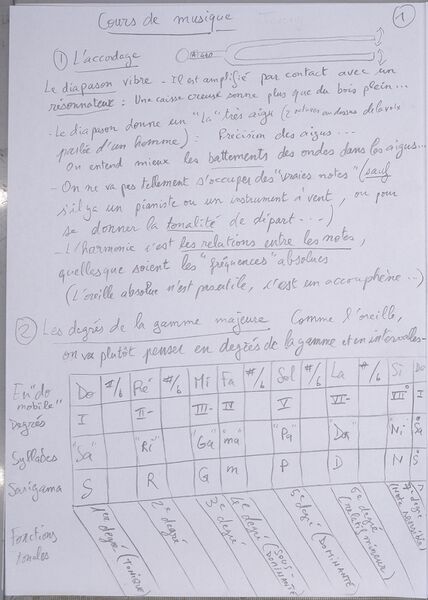 Cours de musique
1
① L'accordage
Le diapason vibre - Il est amplifié par contact avec un
résonnateur : Une caisse creuse sonne plus que du bois plein...
- Le diapason donne un "La" très aigu (2 octaves au dessus de la voix
parlée d'un homme) : Précision des aigus...
On entend mieux les battements des ondes dans les aigus...
- On ne va pas tellement s'occuper des "vraies notes" (sauf
s'il y a un pianiste ou un instrument à vent, ou pour
se donner la tonalité de départ...)
- L'harmonie c'est les relations entre les notes,
quelles que soient les "fréquences" absolues
(L'oreille absolue n'est pas utile, c'est un acouphène...)
② Les degrés de la gamme majeure Comme l'oreille,
on va plutôt penser en degrés de la gamme et en intervalles-
En "do mobile" Do #/b Ré #/b Mi Fa #/b Sol #/b La #/b Si Do
Degrés I II- III- IV V VI- VII° I
Syllabes "Sa" "Ri" "Ga" "ma" "Pa" "Da" "Ni" Sa
Sarigama S R G m P D N S
Fonctions tonales
1er degré (TONIQUE)
2e degré
3e degré
4e degré (SOUS DOMINANTE)
5e degré (DOMINANTE)
6e degré (relatif mineur)
7e degré (Note sensible)